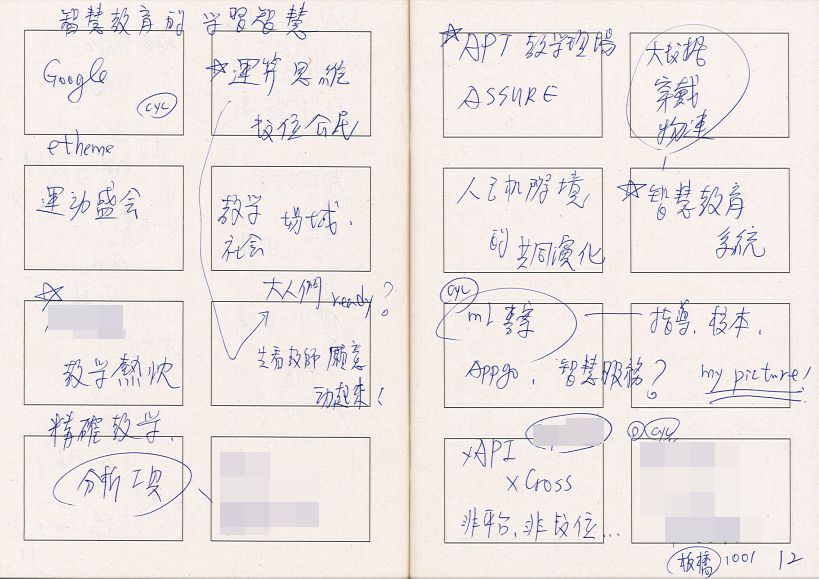 智慧教育的 学習智慧
Google
CYC
☆運算思維
数位公民
etheme
運动盛会
教学
社会
場域、
☆
教学熱忱
大人們 ready?
先看教師願意
动起來!
精確教学、
分析工具
☆APT 教学現場
ASSURE
大数据
穿戴
物連
人与机 环境
的 共同演化
☆智慧教育
系統
CYC
ML 專案
Appgo、智慧服務?
指導、校本、
my picture!
xAPI
xCross
非平台,非数位...
P CYC
板橋 1001 12